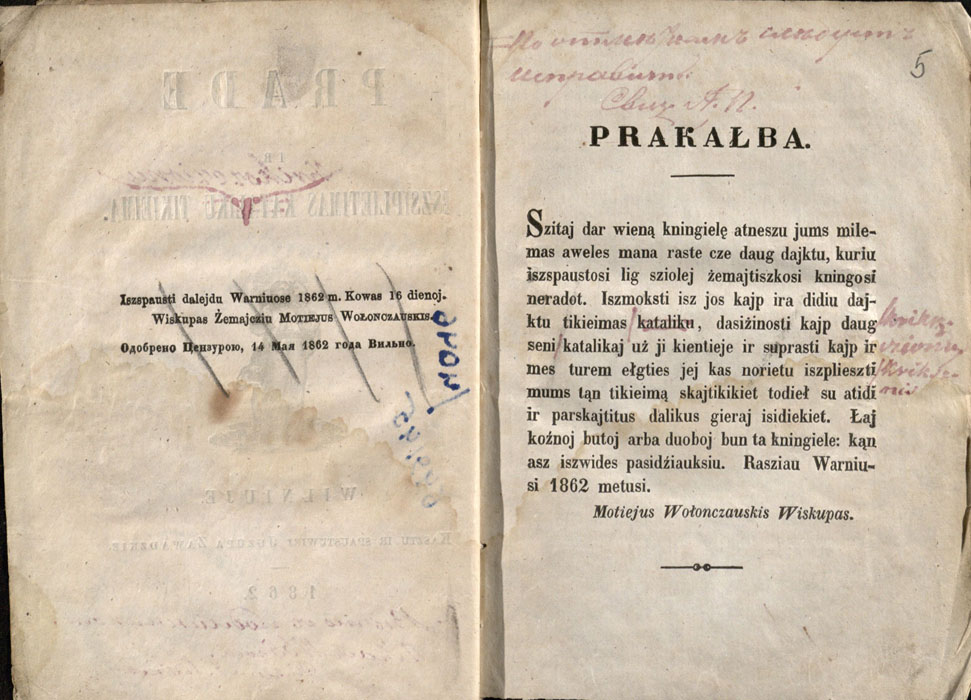 Iszspausti dalejdu Warniuose 1862 m. Kowas 16 dienoj.
Wiskupas Żemajcziu Motiejus Wołonczauskis.
Одобрено Цензурою, 14 Мая 1862 года Вильно.
5
исправить
PRAKAŁBA.
Szitaj dar wieną kningielę atneszu jums mile-
mas aweles mana raste cze daug dajktu, kuriu
iszspaustosi lig sziolej żemajtiszkosi kningosi
neradot. Iszmoksti isz jos kajp ira didiu daj-
ktu tikieimas kataliku, dasiżinosti kajp daug
seni katalikaj uż ji kientieje ir suprasti kajp ir
mes turem ełgties jej kas norietu iszplieszti
mums tąn tikieimą skajtikikiet todieł su atidi
ir parskajtitus dalikus gieraj isidiekiet. Łaj
koźnoj butoj arba duoboj bun ta kningiele: kąn
asz iszwides pasidżiauksiu. Rasziau Warniu-
si 1862 metusi.
Motiejus Wołonczauskis Wiskupas.